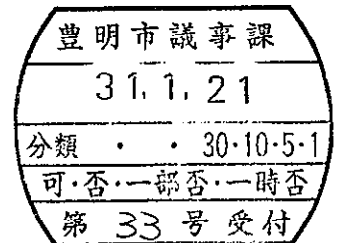 豊明市議事課
31.1.21
分類 ・ ・ 30・10・5・1
可・否・一部否・一時否
第 33 号 受付